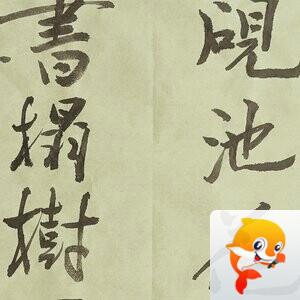 硯池
書榻樹